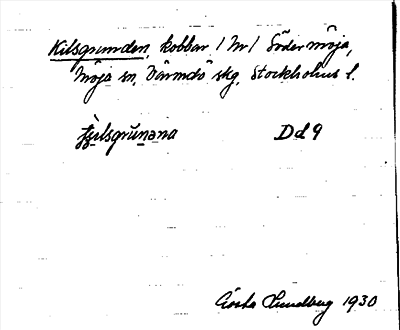 Kilsgrunden, kobbar / Nr / Södermöja,
Möja sn, Värmdö skg, Stockholms l.
Dd9
Gösta Lundberg 1930